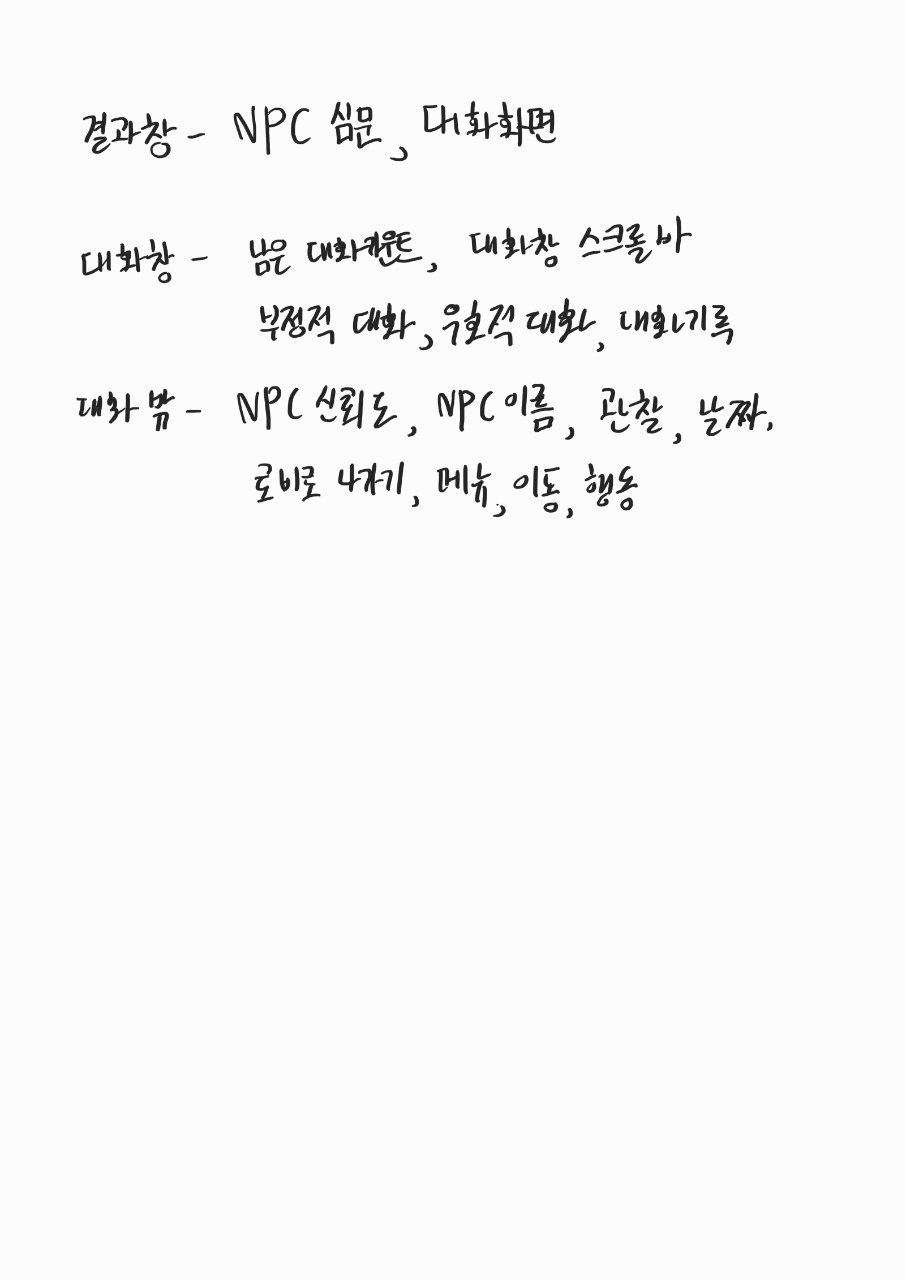 결과창 - NPC 심문, 대화화면
대화창 - 남은 대화카운트, 대화창 스크롤 바
부정적 대화, 우호적 대화, 대화기록
대화 밖 - NPC 신뢰도, NPC 이름, 관찰, 날짜,
로비로 나가기, 메뉴, 이동, 행동